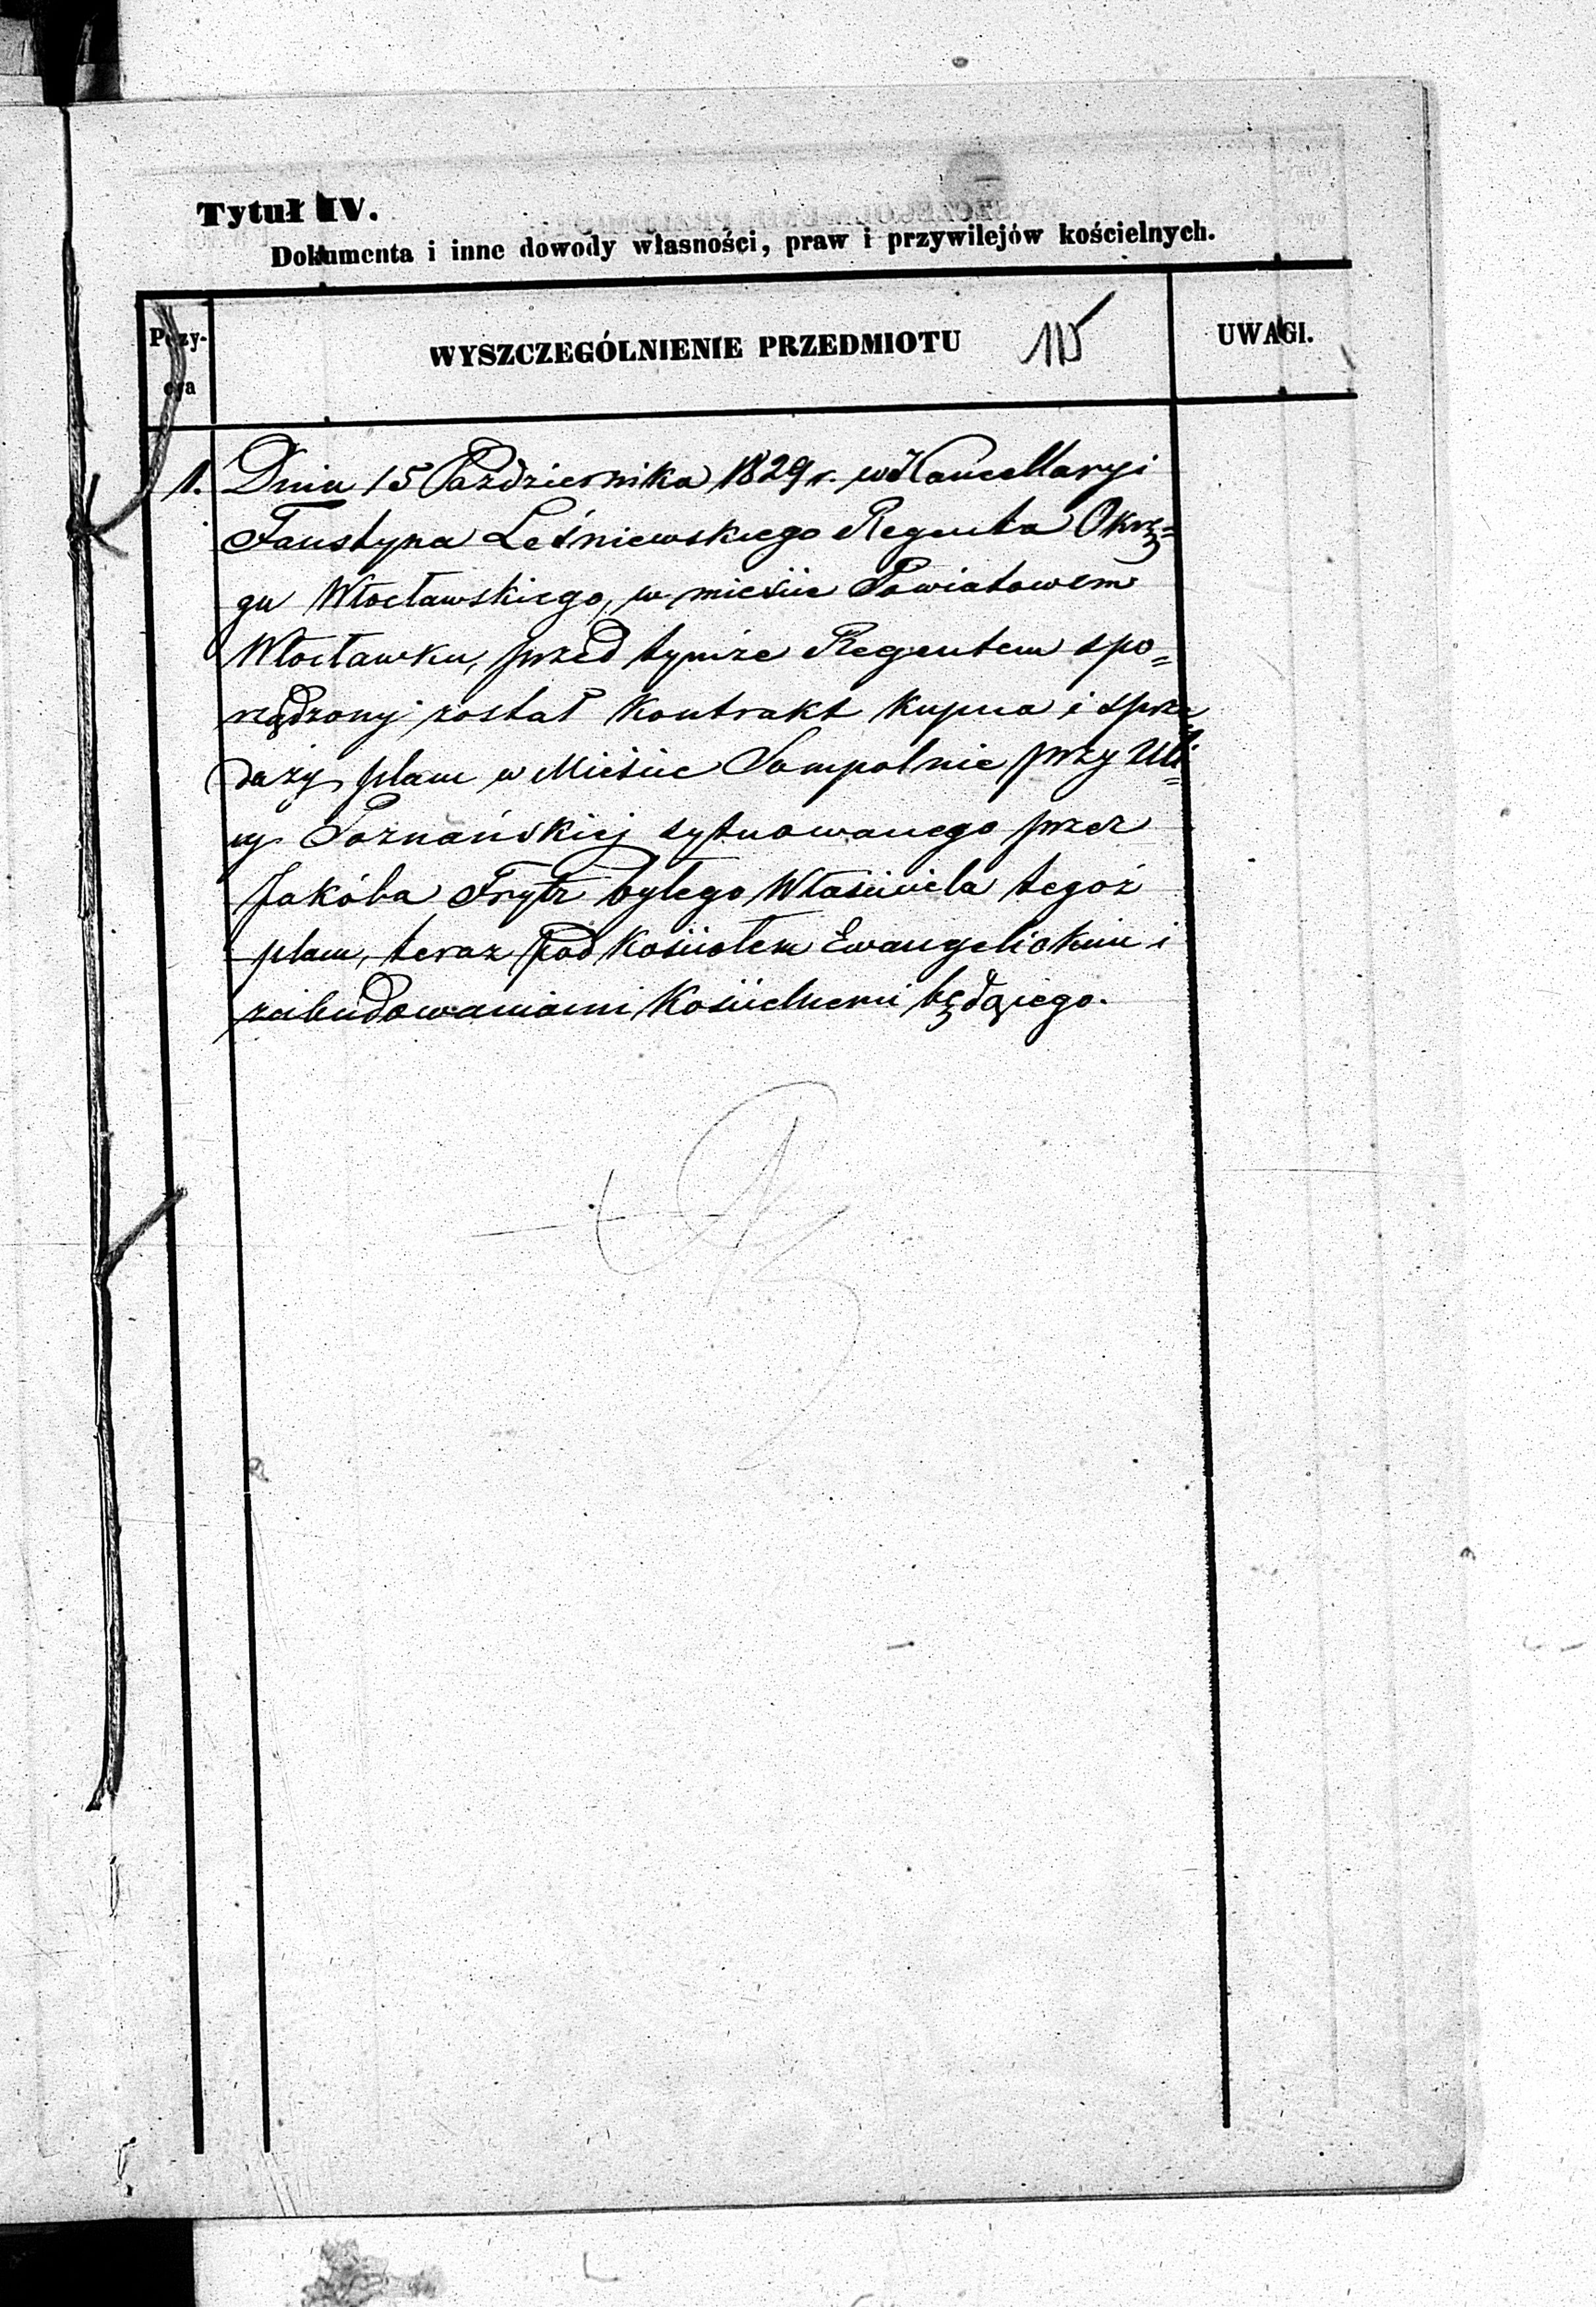 Tytuł IV.
Dokumenta i inne dowody własności, praw i przywilejów kościelnych.
Pozy-
cya
WYSZCZEGÓLNIENIE PRZEDMIOTU
UWAGI.
1. Dnia 15 Października 1829 r. w Kancellaryi
Faustyna Leśniewskiego Regenta Okrę=
gu Włocławskiego, w mieście Powiatowem
Włocławku, przed tymże Regentem spo=
rządzony został Kontrakt Kupna i sprze
daży placu w Mieście Sompolnie przy Uli=
cy Poznańskiej sytuowanego przez
Jakóba Frytz byłego Właściciela tegoż
placu, teraz pod Kościołem Ewangelickim i
zabudowaniami Kościelnemi będącego.